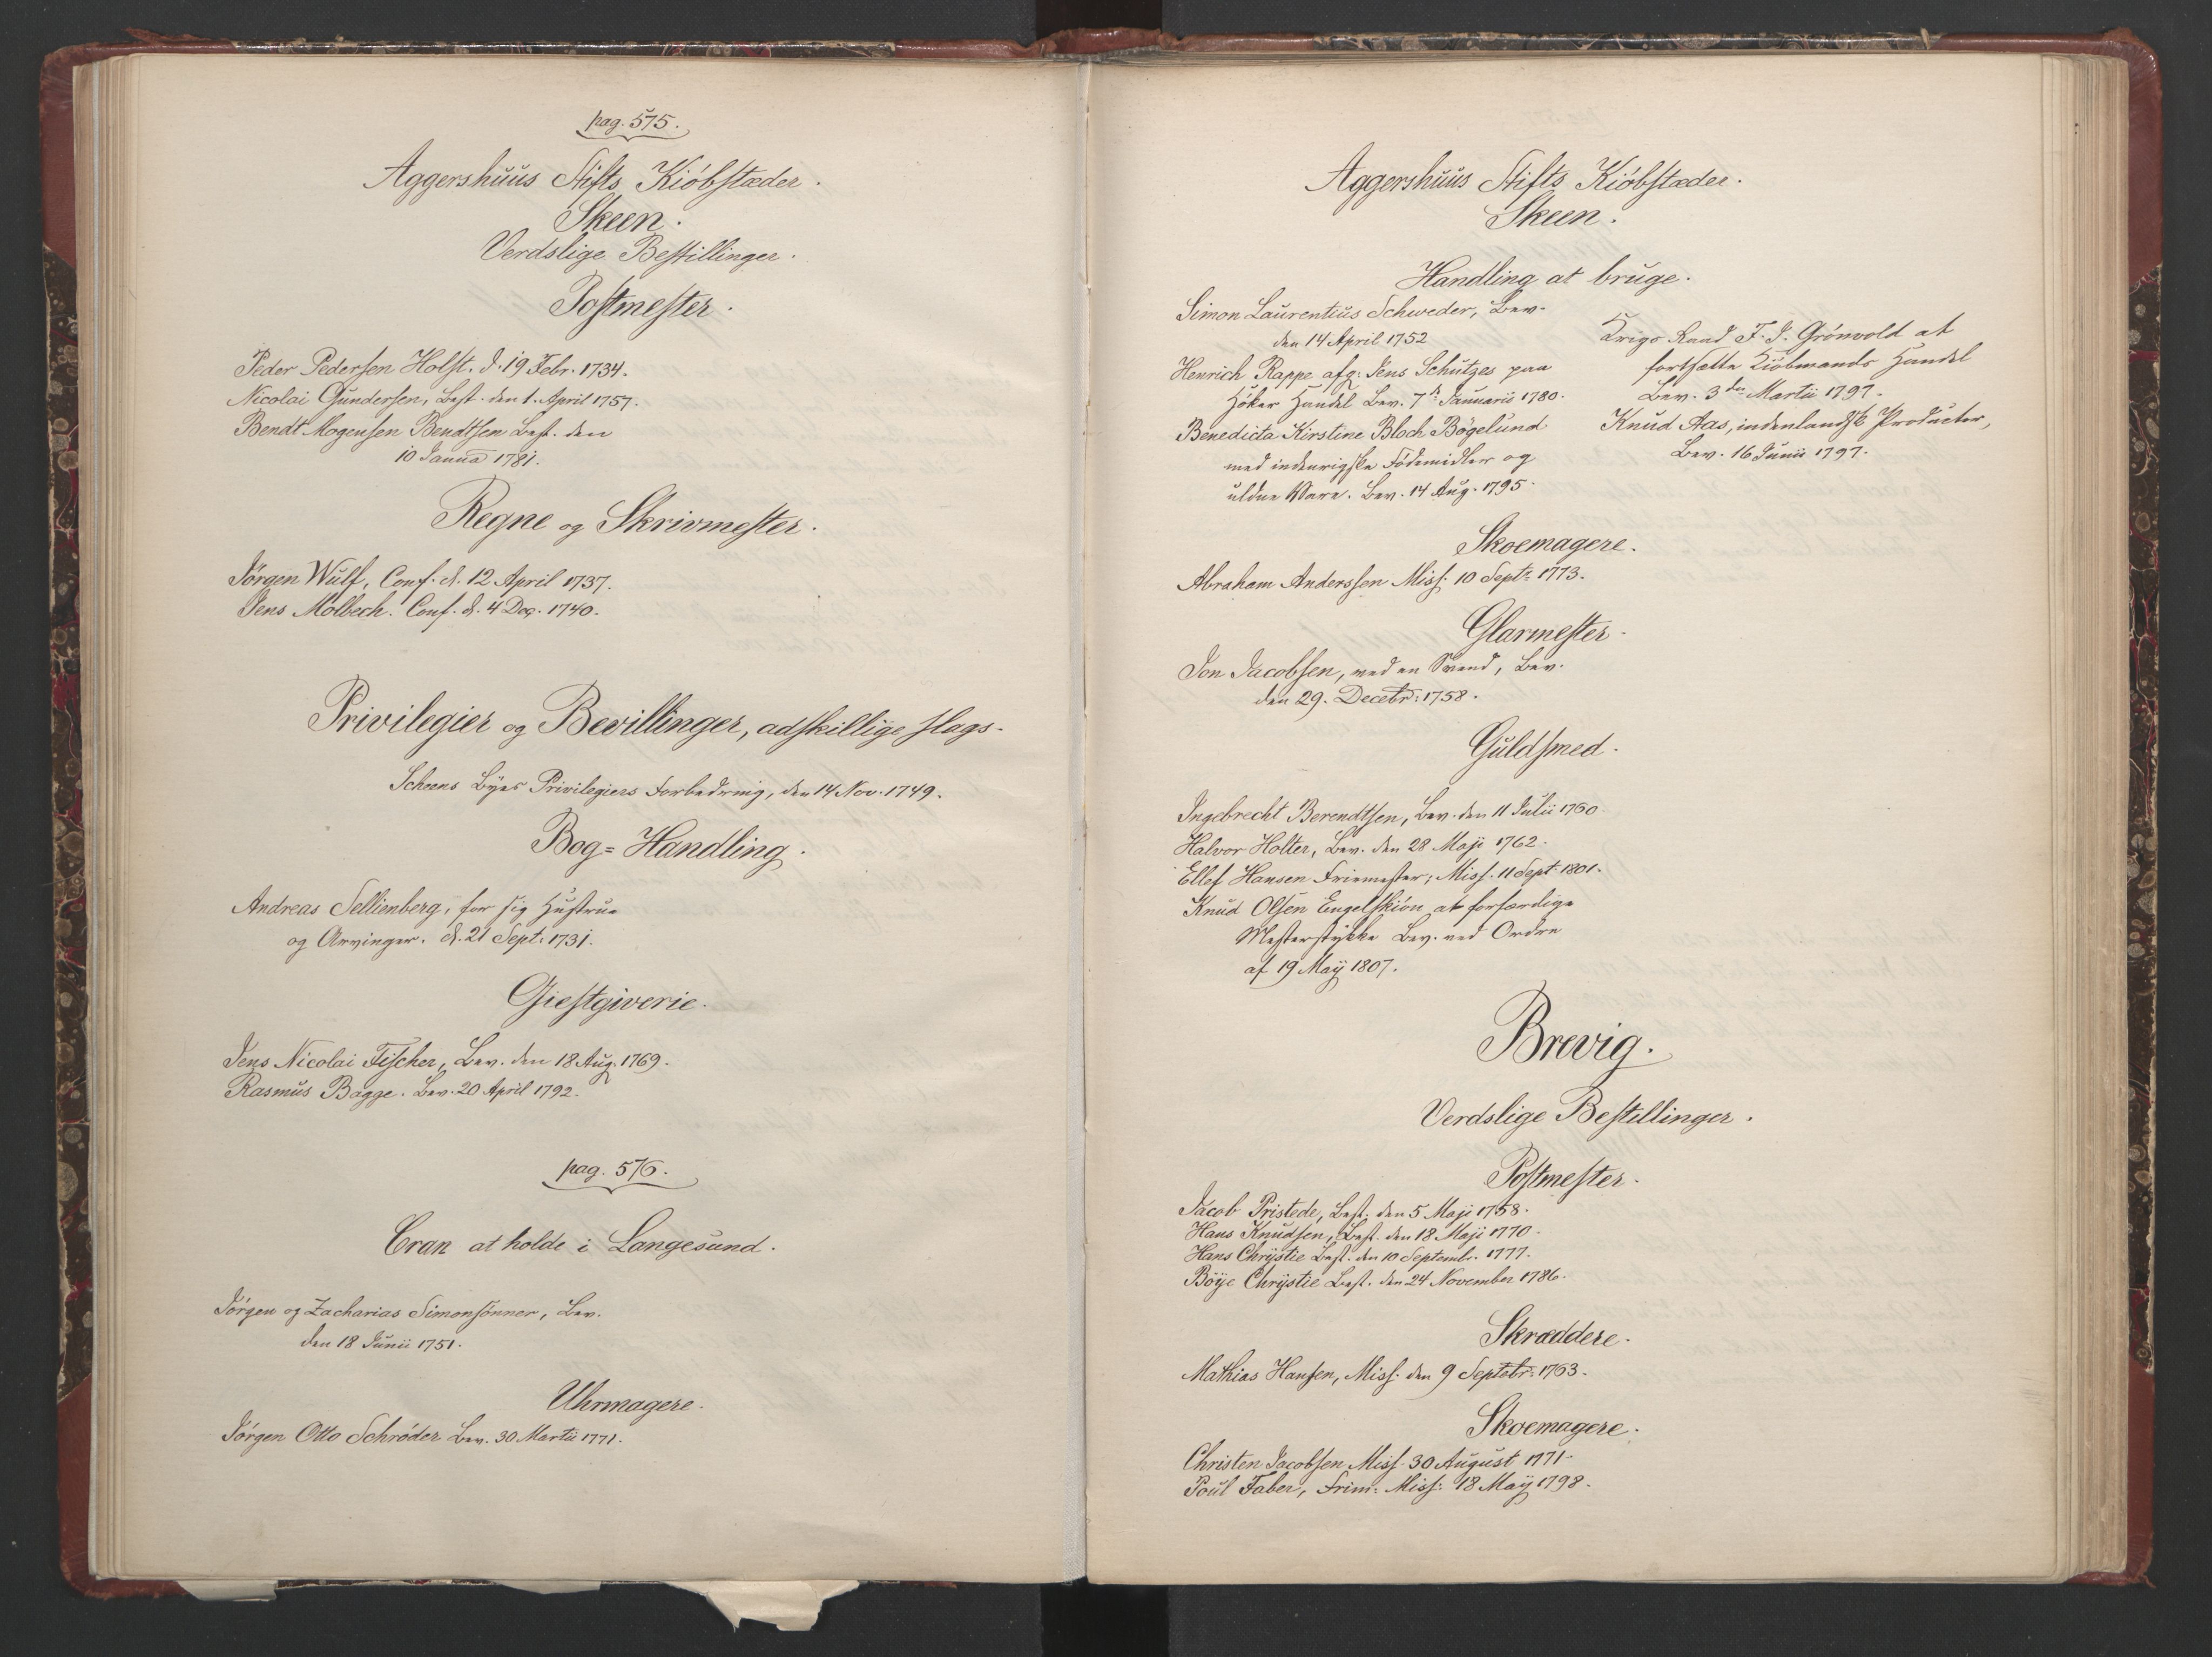 pag. 575.
Aggershuus Stifts Kiöbstæder.
Skeen.
Verdslige Bestillinger.
Postmester.
Peder Pedersen Holst. d. 19 Febr. 1734.
Nicolai Gundersen, Best. den 1. April 1757.
Bendt Mogensen Bendtsen Best. den
10 Janua 1781.
Regne og Skrivmester.
Jörgen Wulf, Conf. d. 12 April 1737.
Jens Molbech. Conf. d. 4 Dec. 1740.
Privilegier og Bevillinger, adskillige slags.
Scheens Byes Privilegiers Forbedring, den 14 Nov. 1749.
Bog=Handling.
Andreas Sellienberg, for sig Hustrue
og Arvinger. d. 21 Sept. 1731.
Giestgiverie.
Jens Nicolai Fischer, Bev. den 18 Aug. 1769.
Rasmus Bagge. Bev. 20 April 1792.
pag. 576.
Cran at holde i Langesund.
Jörgen og Zacharias Simonsönner, Bev.
den 18 Junii 1751.
Uhrmagere.
Jörgen Otto Schröder Bev. 30 Martii 1771.
Aggershuus Stifts Kiöbstæder.
Skeen.
Handling at bruge.
Simon Laurentius Schweder, Bev.
den 14 April 1752
Henrich Rappe afg: Jens Schutzes paa
Höker Handel Bev. 7de Januarii 1780.
Benedicta Kirstine Bloch Bögelund
med indenrigske Födemidler og
uldne Ware. Bev. 14 Aug. 1795.
Krigs Raad F. J. Grönvold at
fortsætte Kiöbmands Handel
Bev. 3den Martii 1797.
Knud Aas, indenlandske Producter,
Bev. 16 Junii 1797.
Skoemagere.
Abraham Anderssen Miss: 10 Septr 1773.
Glarmester.
Jon Jacobsen, med en Svend, Bev.
den 29. Decebr: 1758.
Guldsmed.
Ingebrecht Berendtsen, Bev. den 11 Julii 1760.
Halvor Holter, Bev. den 28 Maji 1762.
Ellef Hansen Friemester; Miss. 11 Sept 1801.
Knud Olsen Engelskiön at forfærdige
Mesterstykke Bev. ved Ordre
af 19 May 1807.
Brevig.
Verdslige Bestillinger.
Postmester.
Jacob Pristede, Best. den 5 Maji 1758.
Hans Knudsen, Best. den 18 Maji 1770.
Hans Chrystie Best. den 10 Septemb. 1777.
Böye Chrystie Best. den 24 November 1786.
Skræddere.
Mathias Hansen, Miss: den 9 Septebr: 1763.
Skoemagere.
Christen Jacobsen Miss. 30 August 1771.
Poul Faber, Frim: Miss: 18 May 1798.